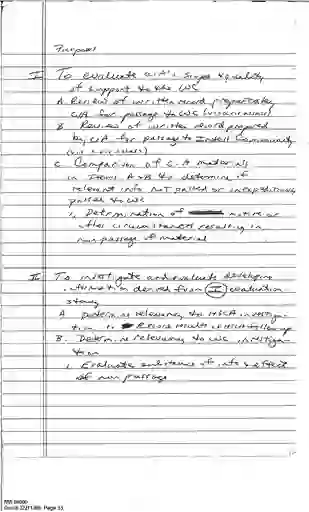 Purposes
I. To evaluate CIA's scope & quality
of support to the WC
A. Review of written record prepared by
CIA for passage to WC
B. Review of written record prepared
by CIA for passage to Intell Community
C. Comparison of C-A materials
in Items A & B to determine if
relevant info not passed or
passed to WC
1. Determination of motive or
other circumstances resulting in
non passage of material
II. To investigate and evaluate
information derived from I evaluation
study
A. determine relevancy to HSCA investiga-
tion 1. Record results
B. Determine relevancy to WC investiga-
tion
1. Evaluate substance of info & effect
of non passage
Page 53